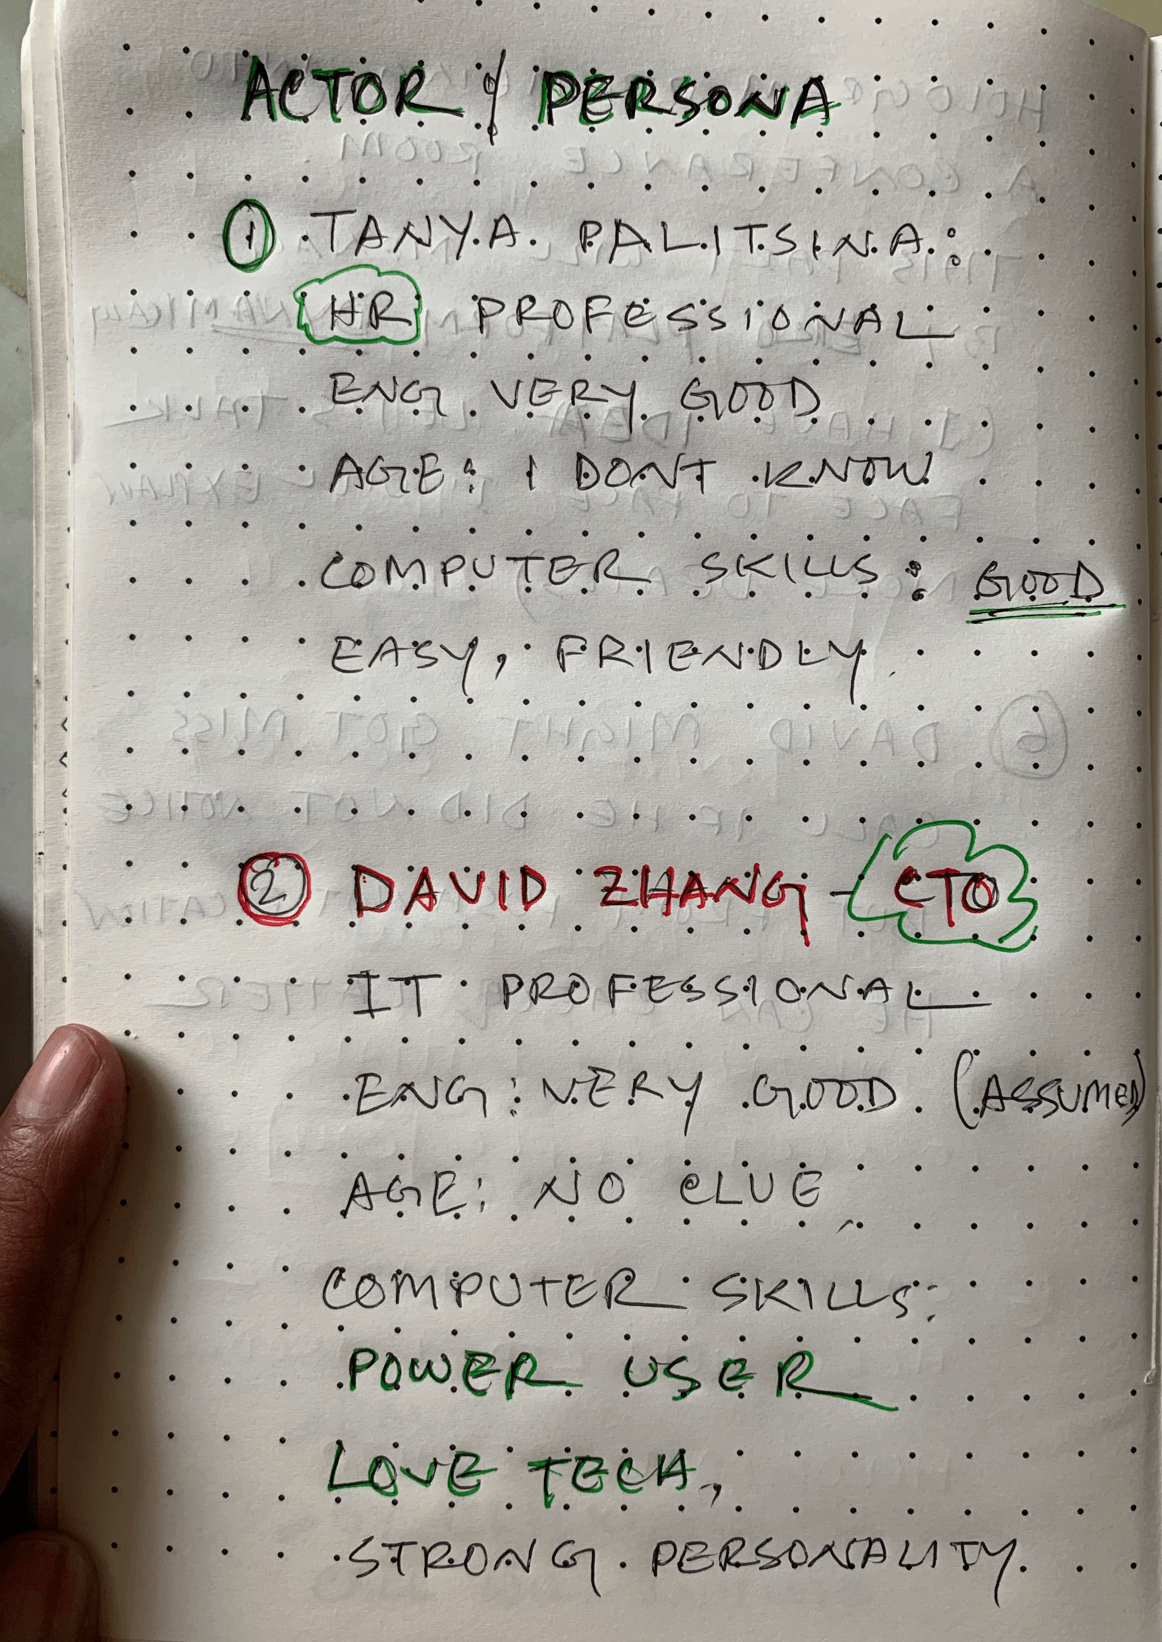 ACTOR / PERSONA
1 TANYA PALITSINA:
HR PROFESSIONAL
ENG VERY GOOD
AGE: I DONT KNOW
COMPUTER SKILLS: GOOD
EASY, FRIENDLY
2 DAVID ZHANG - CTO
IT PROFESSIONAL
ENG: VERY GOOD. (ASSUMED)
AGE: NO CLUE
COMPUTER SKILLS:
POWER USER
LOVE TECH,
STRONG PERSONALITY.